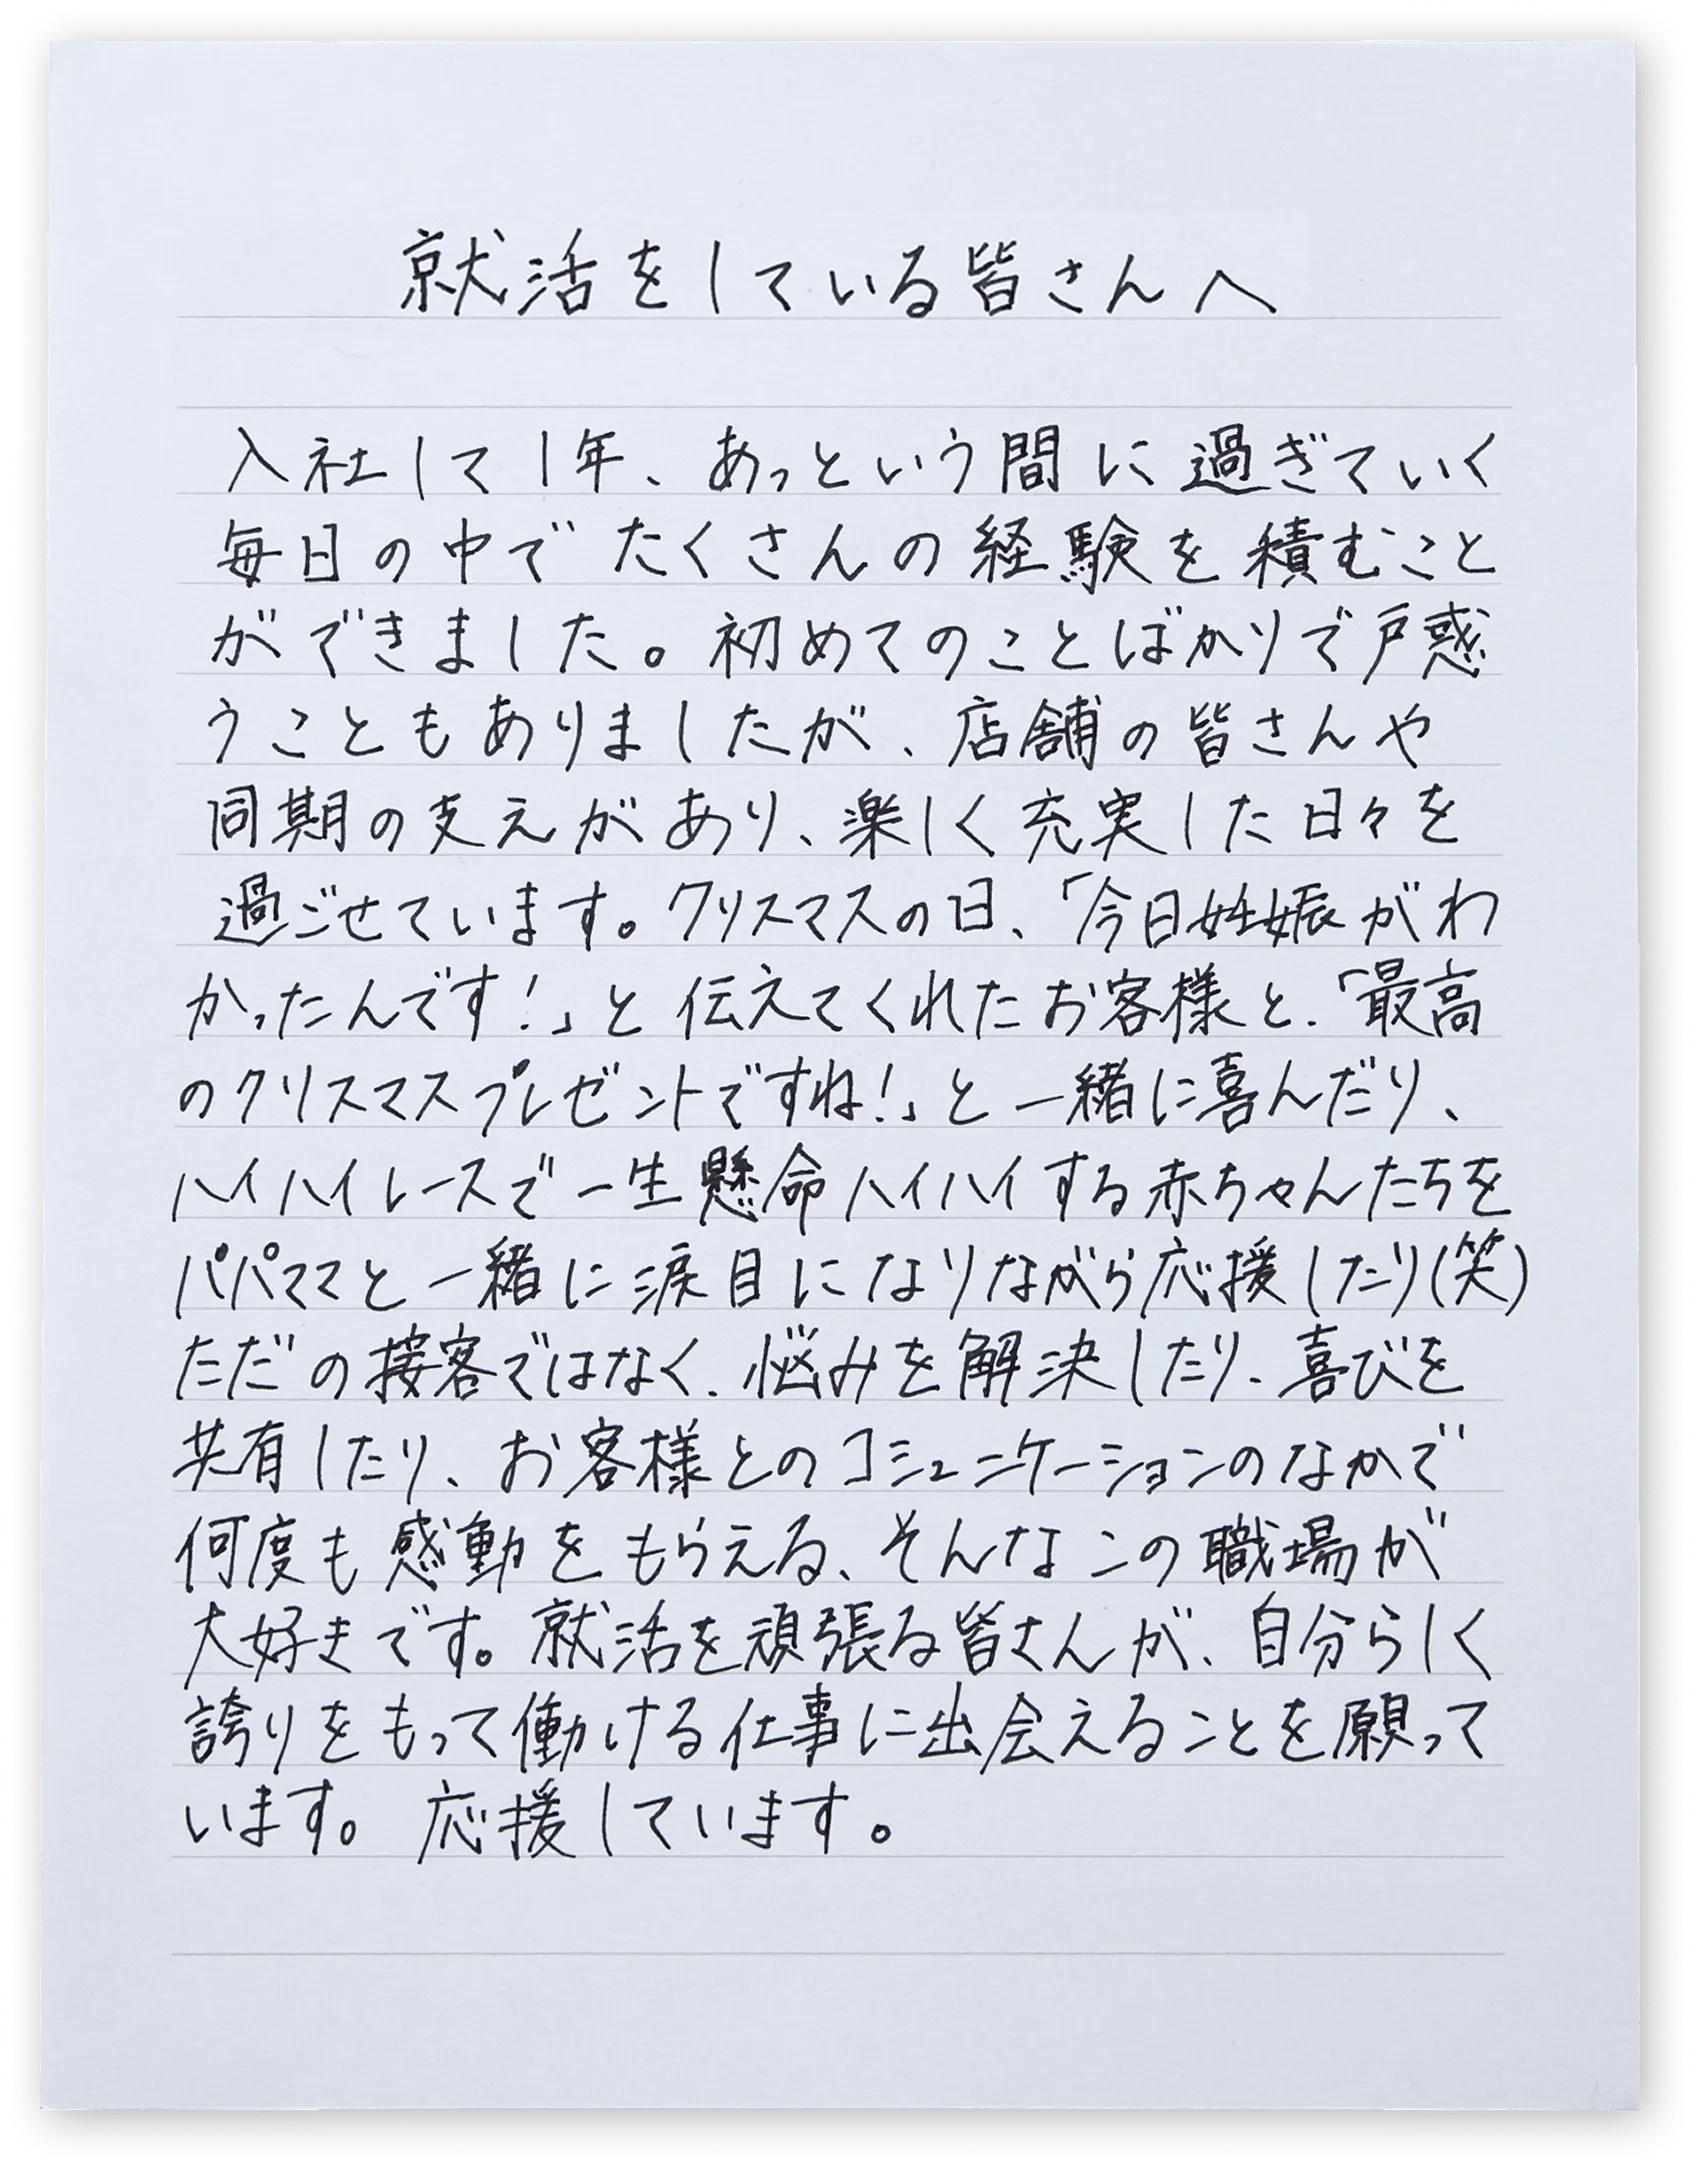 就活をしている皆さんへ
入社して1年、あっという間に過ぎていく
毎日の中でたくさんの経験を積むこと
ができました。初めてのことばかりで戸惑
うこともありましたが、店舗の皆さんや
同期の支えがあり、楽しく充実した日々を
過ごせています。クリスマスの日、「今日妊娠がわ
かったんです!」と伝えてくれたお客様と、「最高
のクリスマスプレゼントですね!」と一緒に喜んだり、
ハイハイレースで一生懸命ハイハイする赤ちゃんたちを
パパママと一緒に涙目になりながら応援したり(笑)
ただの接客ではなく、悩みを解決したり、喜びを
共有したり、お客様とのコミュニケーションのなかで
何度も感動をもらえる、そんなこの職場が
大好きです。就活を頑張る皆さんが、自分らしく
誇りをもって働ける仕事に出会えることを願って
います。応援しています。